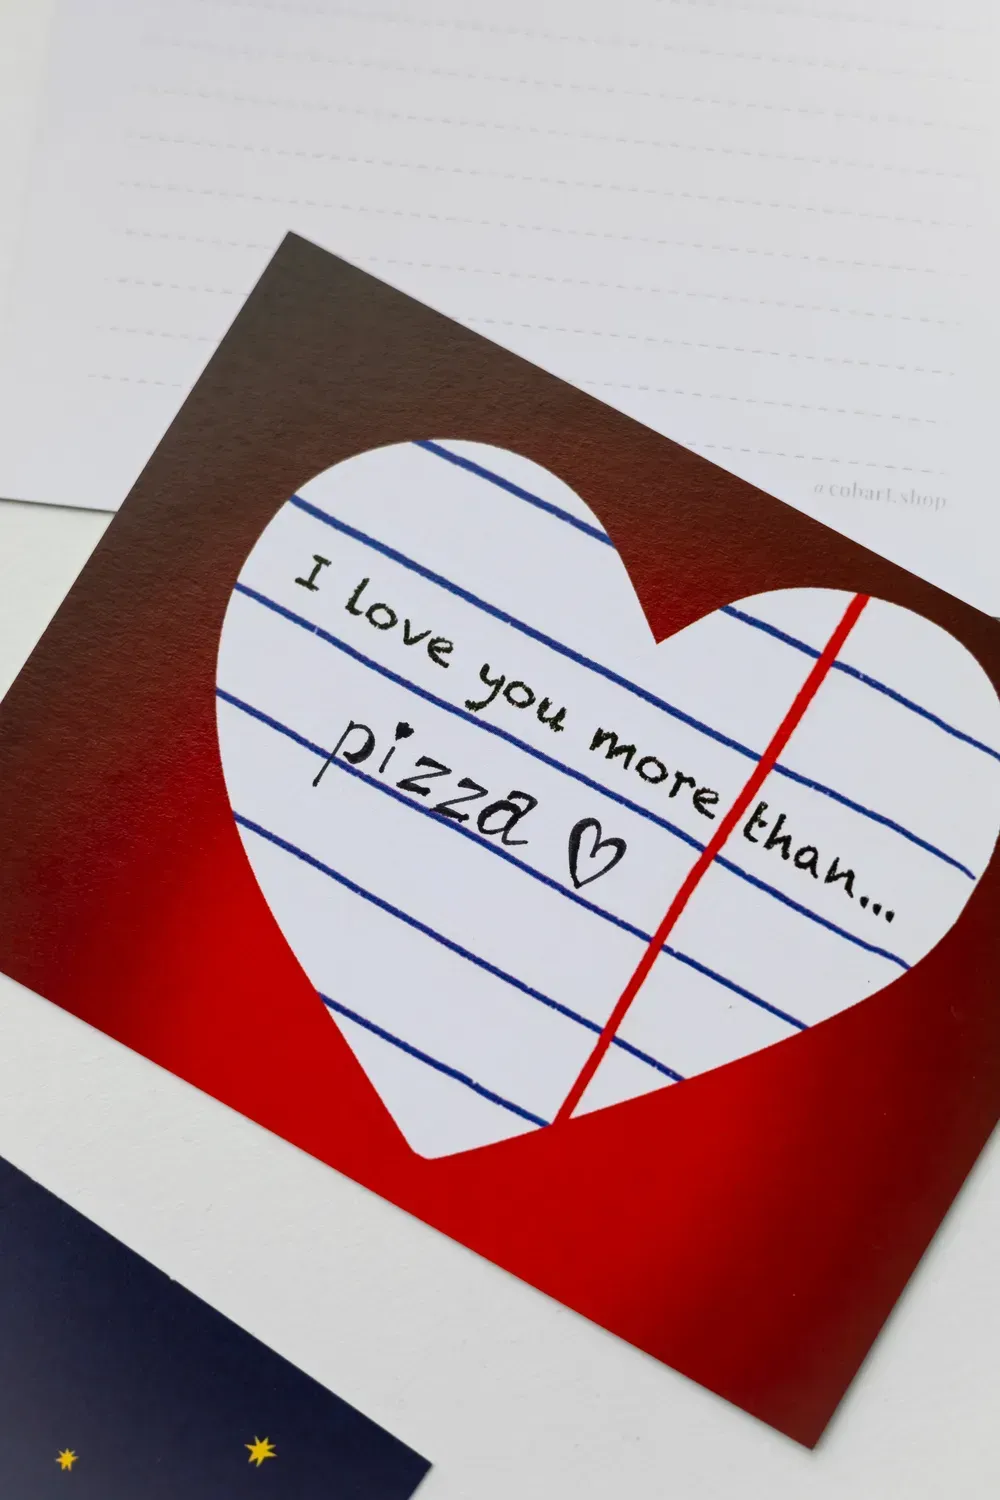 @cobart.shop
I love you more than...
pizza ♡